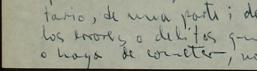 tario, de una parte i de
los errores o delitos que
o haya de cometer, no